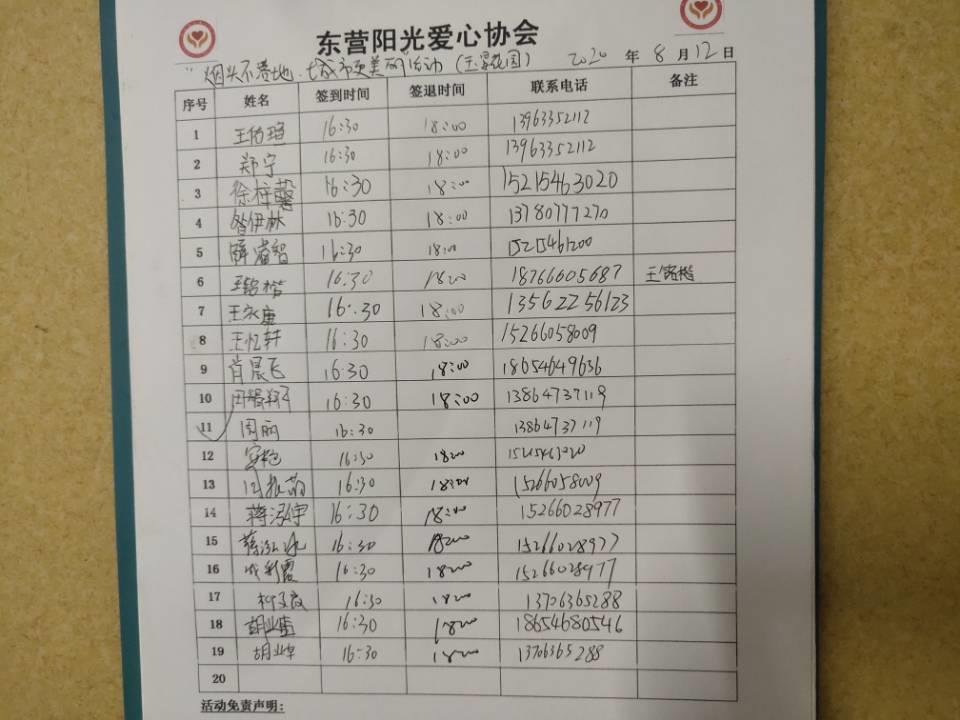 东营阳光爱心协会
"烟头不落地·城市更美丽"活动（玉景花园） 2020 年 8 月 12 日
序号 姓名 签到时间 签退时间 联系电话 备注
1 16:30 18:00 13963352112
2 郑宁 16:30 18:00 13963352112
3 徐梓馨 16:30 18:00 15215463020
4 昝伊林 16:30 18:00 13780777270
5 薛睿智 16:30 18:00
6 王铭楷 16:30 1800 18766605687 王铭楷
7 王永康 16:30 18:00 13562256123
8 王忆轩 16:30 18:00 15266058009
9 肖晨飞 16:30 18:00 18654649636
10 16:30 18:00 13864737119
11 周丽 16:30 13864737119
12 16:30 1800
13 16:30 18:00 15266058009
14 蒋泓宇 16:30 18:00 15266028977
15 蒋泓冰 16:30 1800 15266028977
16 16:30 1800 15266028977
17 16:30 1800 13706365288
18 16:30 1800 18654680546
19 胡业卓 16:30 1800 13706365288
20
活动免责声明：